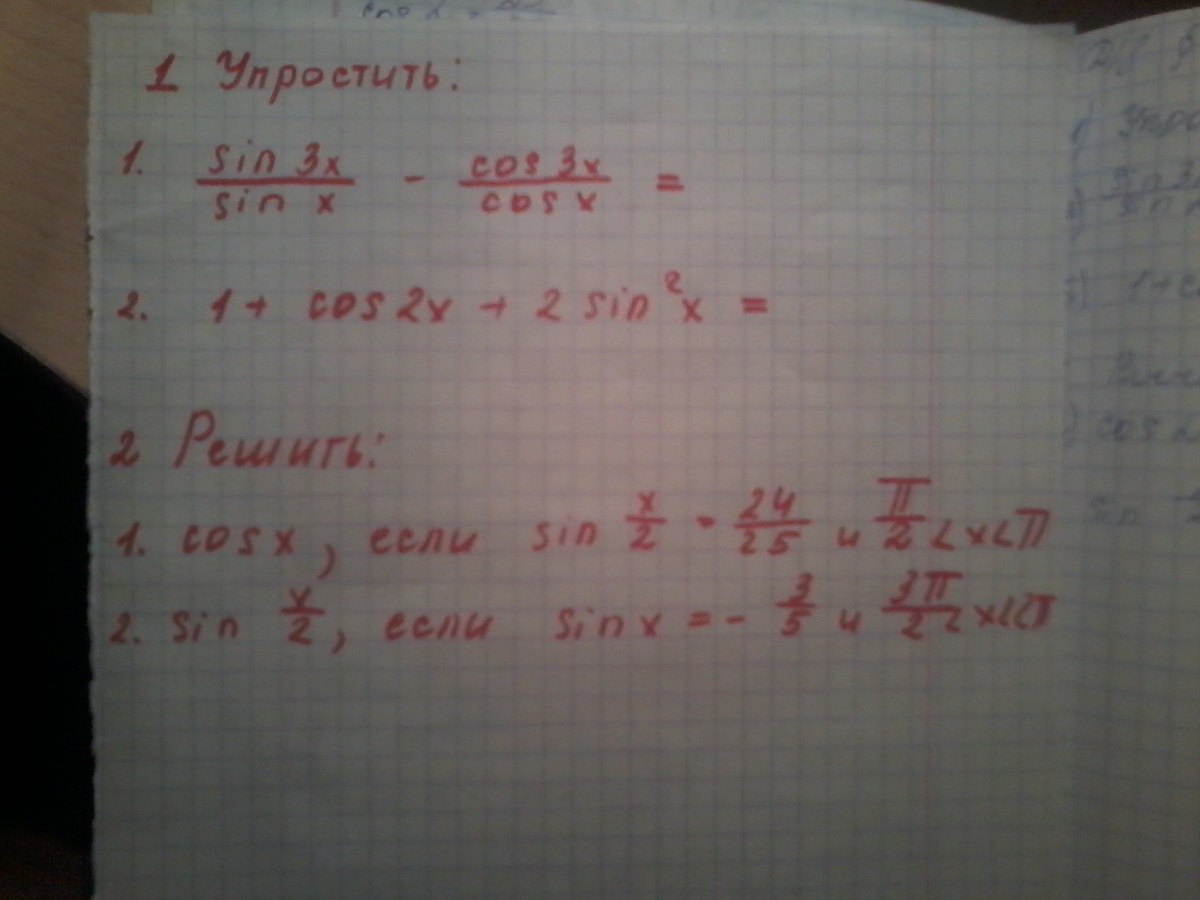 1 Упростить:
1. sin 3x / sin x - cos 3x / cos x =
2. 1 + cos 2x + 2 sin²x =
2 Решить:
1. cos x, если sin x/2 = 24/25 и π/2 < x < π
2. sin x/2, если sin x = - 3/5 и 3π/2 < x <